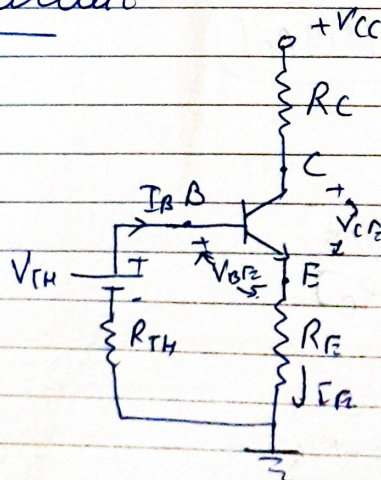 +VCC
RC
C
+
IB B
VCE
-
VTH
+
+
VBE
-
E
-
RTH
RE
IE